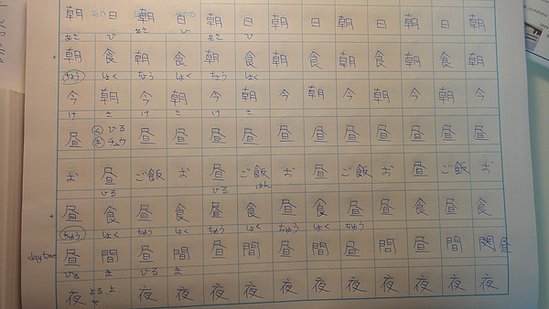 朝 日 朝 日 朝 日 朝 日 朝 日 朝 日
あさ ひ あさ ひ あさ ひ
朝 食 朝 食 朝 食 朝 食 朝 食 朝 食
ちょう しょく ちょう しょく ちょう しょく
今 朝 今 朝 今 朝 今 朝 今 朝 今 朝
け さ け さ け さ
昼 ひる 昼 昼 昼 昼 昼 昼 昼 昼 昼
チュウ
お 昼 ご飯 お 昼 ご飯 お 昼 ご飯 お 昼 ご飯 お
ひる ひる はん
昼 食 昼 食 昼 食 昼 食 昼 昼 食 食
ちゅう しょく ちゅう しょく ちゅう しょく ちゅう しょく ちゅう
daytime 昼 間 昼 間 昼 間 昼 間 昼 間 昼 間 昼
ひる ま ひる ま
夜 よる よ 夜 夜 夜 夜 夜 夜 夜 夜 夜 夜
や